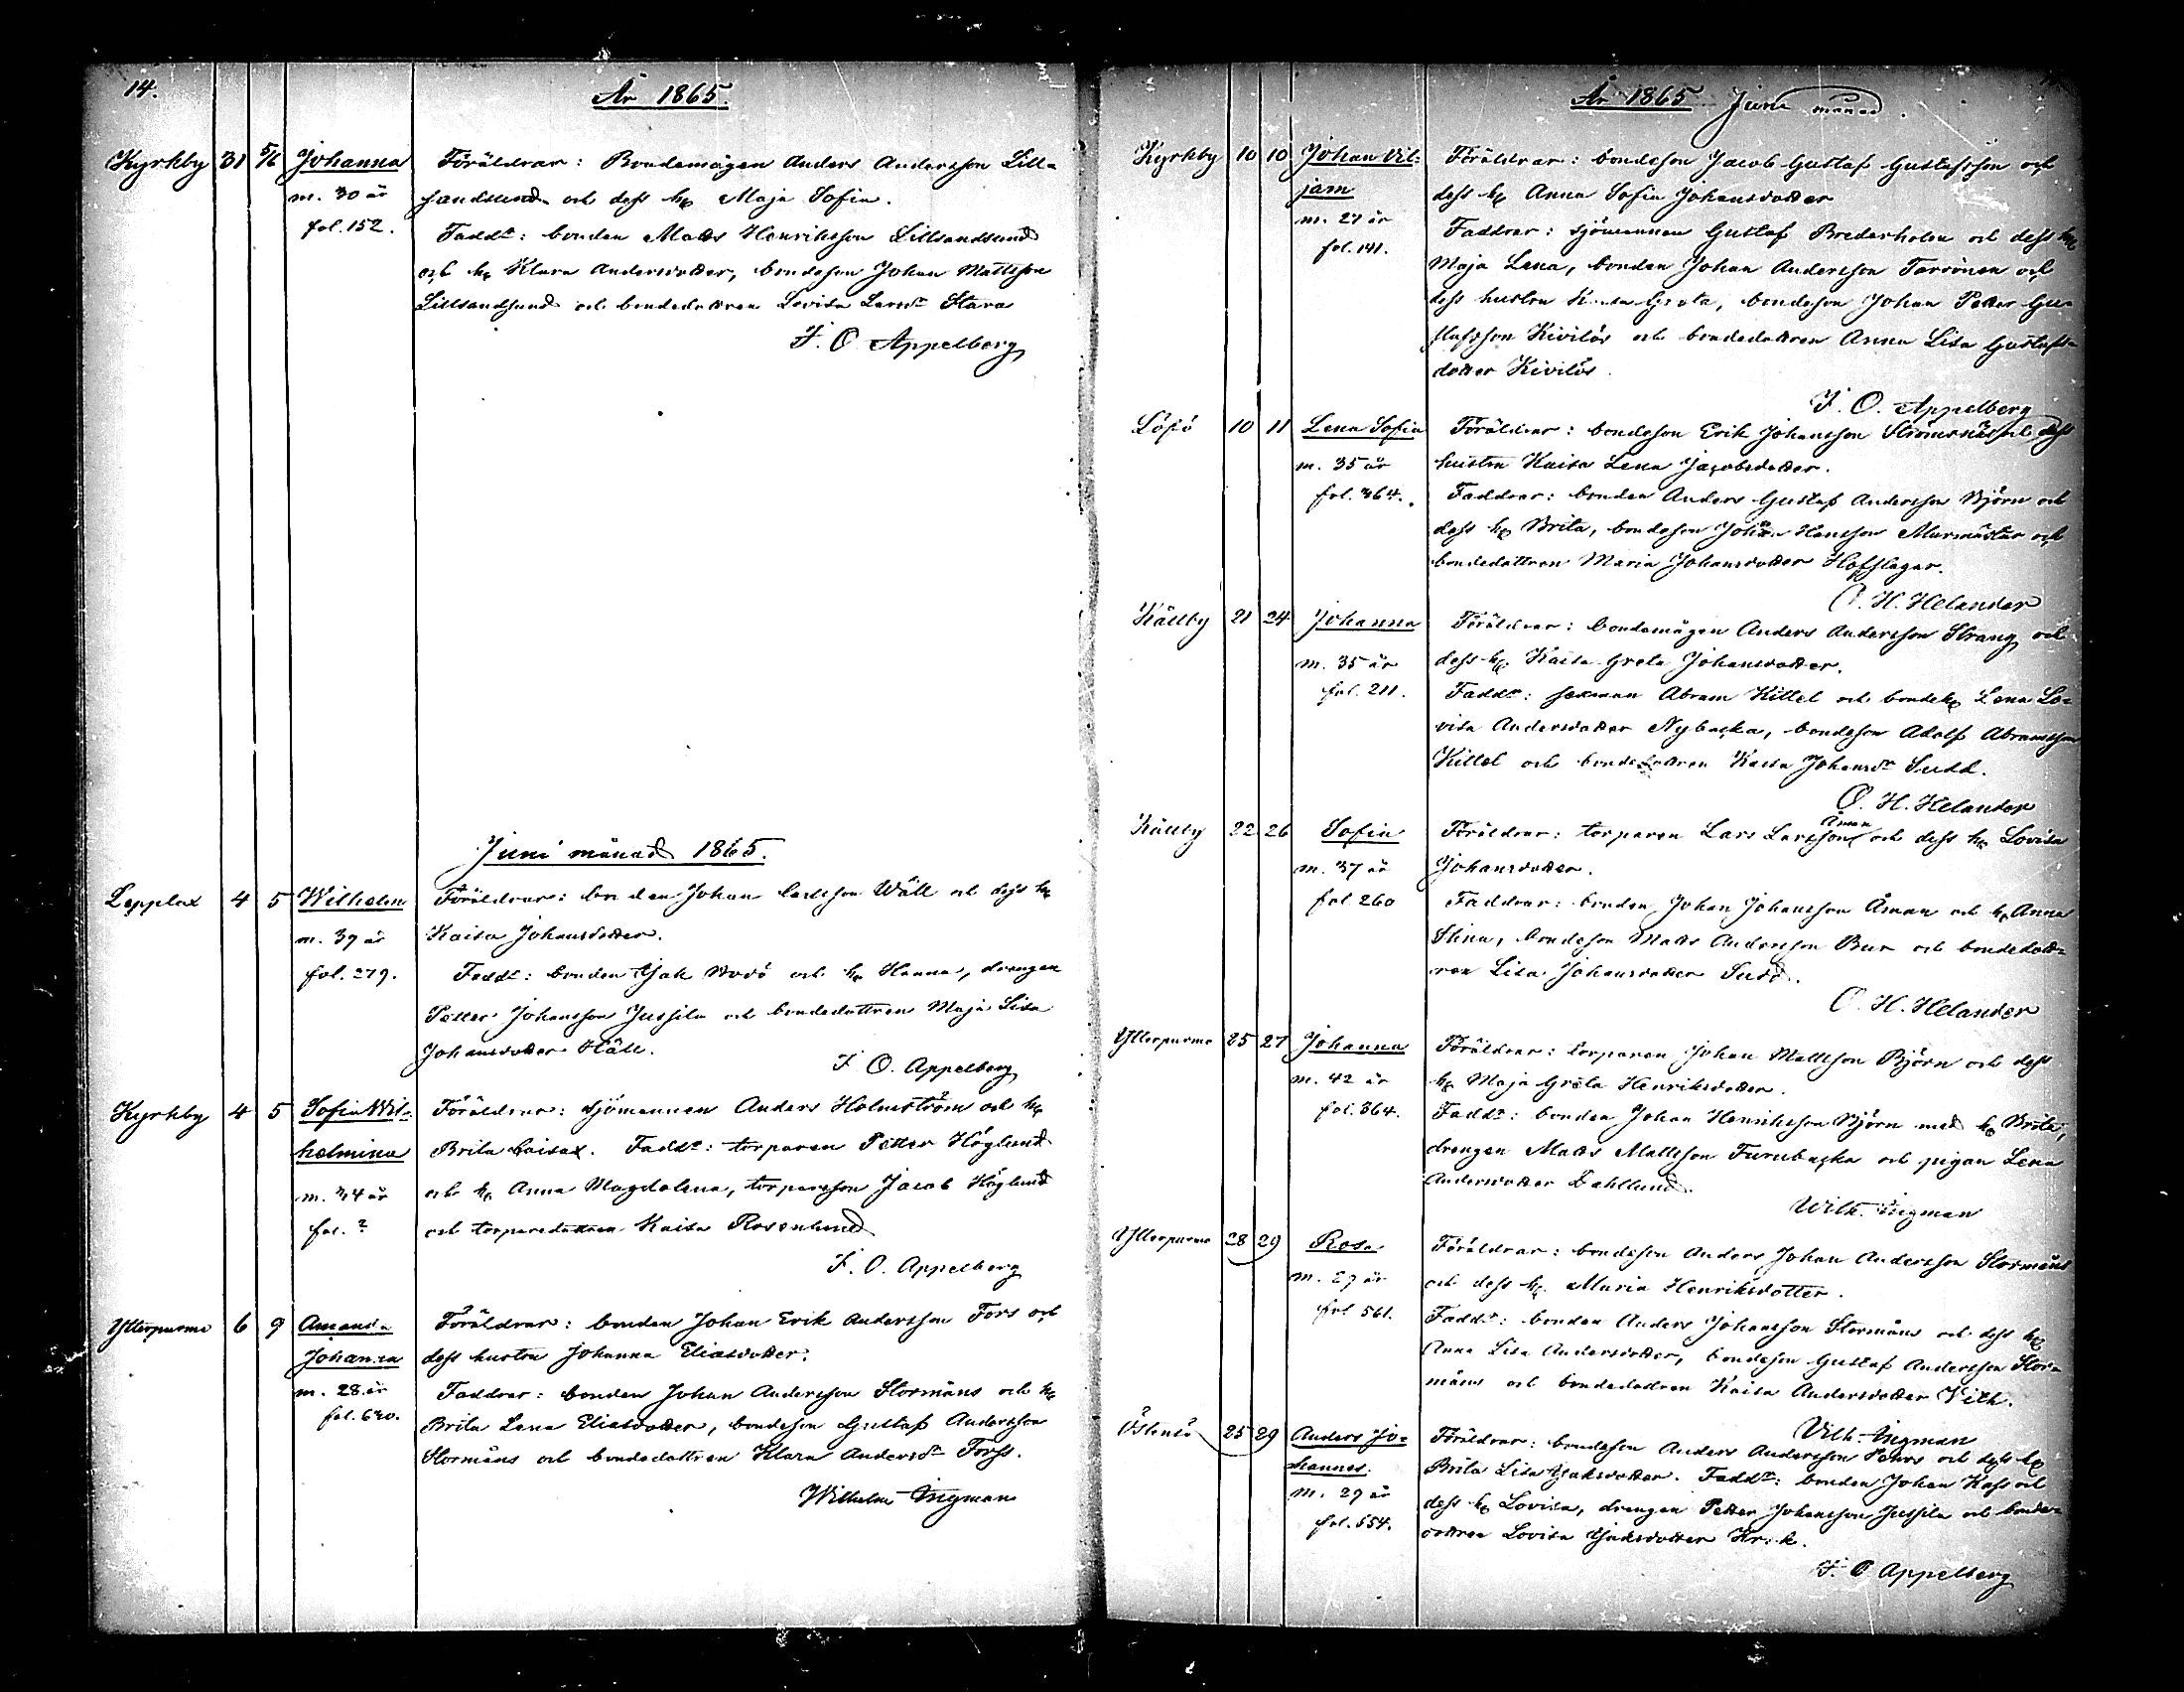 14.
År 1865.
Kyrkby 31 5/6 Johanna Föräldrar: Bondemågen Anders Andersson Lill-
m. 30 år sandsund och dess h. Maja Sofia.
fol. 152. Faddr: bonden Matts Henriksson Lillsandsund
och h. Klara Andersdotter, bondeson Johan Mattsson
Lillsandsund och bondedottren Lovisa Larsdr Stara
F. O. Appelberg
Juni månad 1865.
Lepplax 4 5 Wilhelm Föräldrar: bonden Johan Carlsson Wäll och dess h.
m. 39 år Kaisa Johansdotter.
fol. 279. Faddr: bonden Isak Bodö och h. Hanna, drengen
Petter Johansson Jussila och bondedottren Maja Lisa
Johansdotter Häll.
F. O. Appelberg
Kyrkby 4 5 Sofia Wil- Föräldrar: Sjömannen Anders Holmström och h.
helmina Brita Caisa. Faddr: torparen Petter Höglund
m. 34 år och h. Anna Magdalena, torpareson Jacob Höglund
fol. ? och torparedottren Kaisa Rosenlund
F. O. Appelberg
Ytterpurmo 6 9 Amanda Föräldrar: bonden Johan Erik Andersson Fors och
Johanna dess hustru Johanna Eliasdotter.
m. 28 år Faddrar: bonden Johan Andersson Stormåns och h.
fol. 690. Brita Lena Eliasdotter, bondeson Gustaf Andersson
Stormåns och bondedottren Klara Andersdr Forss.
Wilhelm Ingman
År 1865 Juni månad.
Kyrkby 10 10 Johan Vil- Föräldrar: bondeson Jacob Gustaf Gustafsson och
jam dess h. Anna Sofia Johansdotter
m. 27 år Faddrar: sjömannen Gustaf Brederholm och dess h.
fol. 141. Maja Lena, bonden Johan Andersson Tarvonen och
dess hustru Kaisa Greta, bondeson Johan Petter Gu-
stafsson Kivilös och bondedottren Anna Lisa Gustafs-
dotter Kivilös.
F. O. Appelberg
Löfö 10 11 Lena Sofia Föräldrar: bondeson Erik Johansson Strömsnäs och dess
m. 35 år hustru Kaisa Lena Jacobsdotter.
fol. 364. Faddrar: bonden Anders Gustaf Andersson Björn och
dess h. Brita, bondeson Johan Hansson Murmästar och
bondedottren Maria Johansdotter Hofslagar.
O. H. Helander
Källby 21 24 Johanna Föräldrar: bondemågen Anders Andersson Strang och
m. 35 år dess h. Kaisa Greta Johansdotter.
fol. 211. Faddr: sexman Abram Kittel och bondeh. Lena Lo-
visa Andersdotter Nybacka, bondeson Adolf Abramsson
Kittel och bondedottren Kaisa Johansdr Sudd.
O. H. Helander
Källby 22 26 Sofia Föräldrar: torparen Lars Larsson Åman och dess h. Lovisa
m. 37 år Johansdotter.
fol 260 Faddrar: bonden Johan Johansson Åman och h. Anna
Stina, bondeson Matts Andersson Bur och bondedott-
ren Lisa Johansdotter Sudd.
O. H. Helander
Ytterpurmo 25 27 Johanna Föräldrar: torparen Johan Mattsson Björn och dess
m. 42 år h. Maja Greta Henriksdotter.
fol. 364. Faddr: bonden Johan Henriksson Björn med h. Brita,
drengen Matts Mattsson Furubacka och pigan Lena
Andersdotter Dahllund.
Wilh. Ingman
Ytterpurmo 28 29 Rosa Föräldrar: bondeson Anders Johan Andersson Stormåns
m. 27 år och dess h. Maria Henriksdotter.
fol 561. Faddr: bonden Anders Johansson Stormåns och dess h.
Anna Lisa Andersdotter, bondeson Gustaf Andersson Stor-
måns och bondedottren Kaisa Andersdotter Vith.
Vilh. Ingman
Östensö 25 29 Anders Jo- Föräldrar: bondeson Anders Andersson och dess h.
hannes. Brita Lisa Isaksdotter. Faddr: bonden Johan Kass och
m. 29 år dess h. Lovisa, drengen Petter Johansson Jussila och bonde-
fol. 554. dottren Lovisa Isaksdotter
F. O Appelberg